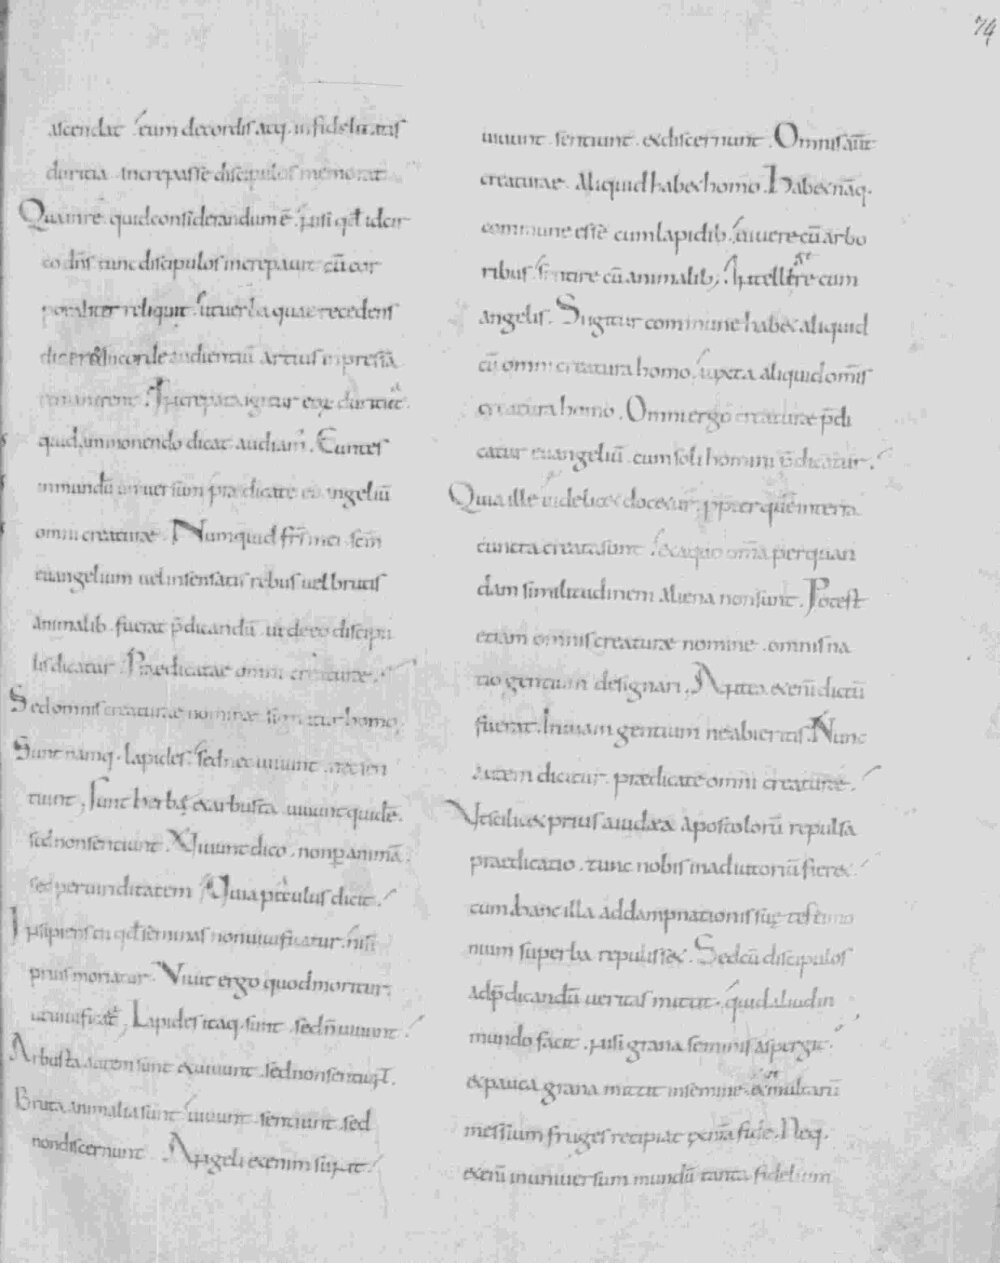 74
ascendat eum de cordis atq. infidelitatis
duritia increpasse discipulos memorat
Qua in re quid considerandum ē. nisi qđ idcir
co dn̄s tunc discipulos increpauit cū cor
poraliter reliquit. ut uerba quae recedens
diceret in corde audientiū artius inpressa
remanerent. Increpata igitur eoꝝ duritia
quid ammonendo dicat audiam̄. Euntes
in mundū uniuersum praedicate euangeliū
omni creaturae. Numquid fr̄s mei scm̄
euangelium uel insensatis rebus uel brutis
animalib. fuerat p̄dicandū. ut de eo discipu
lis dicatur. Praedicatae omni creaturae.
Sed omnis creaturae nominae signatur homo.
Sunt namq. lapides. sed nec uiuunt. nec sen
tiunt. Sunt herbę et arbusta uiuunt quidē.
sed non sentiunt. Viuunt dico. non p animā.
sed per uiriditatem Quia paulus dicit.
Insipiens tu qđ seminas non uiuificatur. nisi
prius moriatur. Viuit ergo quod moritur.
ut uiuificet. Lapides itaq. sunt. sed n̄ uiuunt.
Arbusta autem sunt et uiuunt. sed non sentiunt.
Bruta animalia sunt uiuunt. sentiunt. sed
non discernunt. Angeli etenim sunt.
uiuunt. sentiunt. et discernunt. Omnis aūt
creaturae. aliquid habet homo. Habet nāq.
commune esse cum lapidib. uiuere cū arbo
ribus. sentire cū animalib; Intellegere cum
angelis. Si igitur commune habet aliquid
cū omni creatura homo. iuxta aliquid om̄is
creatura homo. Omni ergo creaturae p̄di
catur euangeliū. cum soli homini p̄dicatur.
Quia ille uidelicet docetur. ppter quē in terra
cuncta creata sunt. et a quo om̄a per quan
dam similitudinem aliena non sunt. Potest
etiam omnis creaturae nomine. omnis na
tio gentium designari. Antea etenī dictū
fuerat. In uiam gentium ne abieritis. Nunc
autem dicitur. praedicate omni creaturae.
Ut scilicet prius a iudaea apostolorū repulsa
praedicatio. tunc nobis in adiutoriū fieret.
cum hanc illa ad dampnationis suę testimo
nium superba repulisset. Sed cū discipulos
ad p̄dicandū ueritas mittit. quid aliud in
mundo facit. nisi grana seminis aspergit.
et pauca grana mittit in semine. ut multarū
messium fruges recipiat ex nr̄a fide. Neq.
etenī in uniuersum mundū tanta fidelium